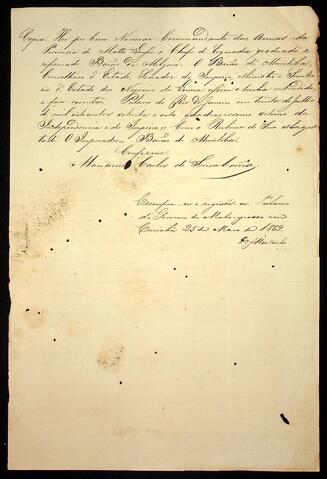 Copia Hei por bem Nomear Commandante das Armas da
Provincia de Matto Grosso o Chefe de Esquadra graduado e
reformado Barão de Melgaço. O Barão de Muritiba,
Conselheiro d'Estado, Senador do Imperio, Ministro e Secreta-
rio d'Estado dos Negocios da Guerra assim o tenha entendido,
e faça executar. Palacio do Rio de Janeiro em
de mil oitocentos sessenta e oito, quadragesimo setimo da
Independencia e do Imperio = Com a Rubrica de Sua Mages-
tade O Imperador = Barão de Muritiba.
Conforme
Mariano Carlos de Souza Corrêa
Cumpra-se e registre-se. Palacio
do Governo de Mato-grosso em
Cuiabá 25 de Março de 1869.